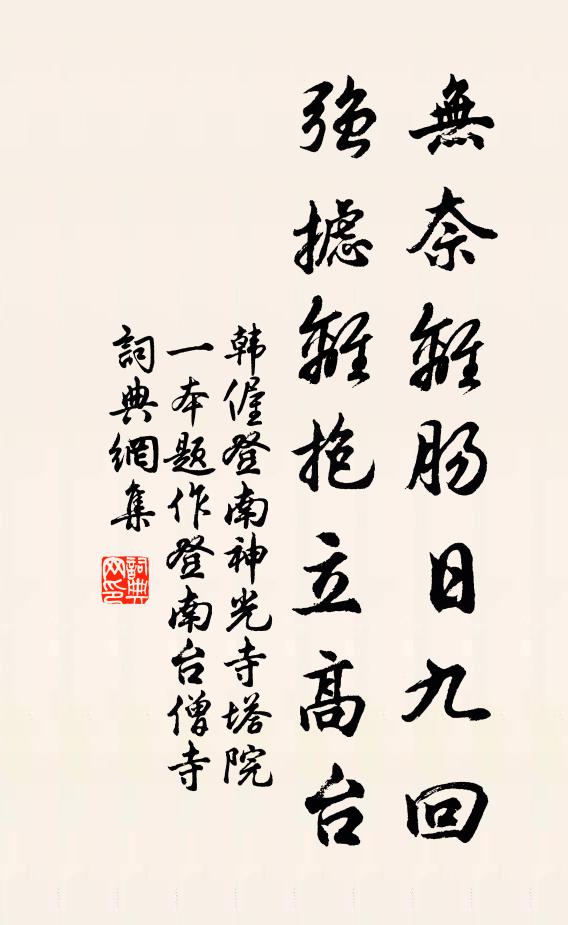 無奈離腸日九回
强攄離抱立高台
韩偓登南神光寺塔院
一本题作登南台僧寺
詞典網集
詞典網印